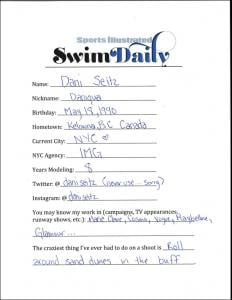 Sports Illustrated
Swim Daily
Name: Dani Seitz
Nickname: Daniqua
Birthday: May 19, 1990
Hometown: Kelowna, B.C Canada
Current City: NYC ♡
NYC Agency: IMG
Years Modeling: 8
Twitter: @ danisseitz (never use... sorry)
Instagram: @ daniseitz
You may know my work in (campaigns, TV appearances,
runway shows, etc.): Marie Claire, Cosmo, Vogue, Maybelline,
Glamour...
The craziest thing I've ever had to do on a shoot is Roll
around sand dunes in the buff